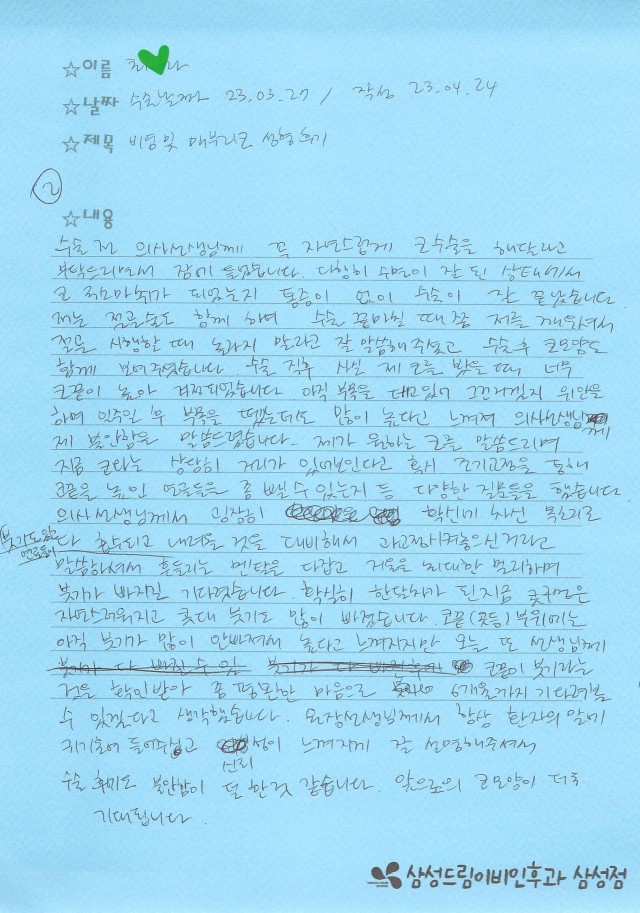 ☆이름 최 라
☆날짜 수술날짜 23.03.27 / 작성 23.04.24
☆제목 비염 및 매부리코 성형후기
2
☆내용
수술 전 의사선생님께 꼭 자연스럽게 코수술을 해달라고
부탁드리면서 잠에 들었습니다. 다행히 수면이 잘 된 상태에서
코 국소마취가 되었는지 통증이 없이 수술이 잘 끝났습니다
저는 절골술도 함께 하여 수술 끝마칠 때쯤 저를 깨우셔서
절골 시행할 때 놀라지 말라고 잘 말씀해주셨고 수술후 코모양도
함께 보여주셨습니다. 수술 직후 사실 제 코를 봤을 때 너무
코끝이 높아 걱정되었습니다. 아직 부목을 대고있어 그런거일지 위안을
하며 일주일 후 부목을 뗐는데도 많이 높다고 느껴져 의사선생님께
제 불안함을 말씀드렸습니다. 제가 원하는 코를 말씀드리며
지금 코와는 상당히 거리가 있어보인다고 혹시 조기교정을 통해
코끝을 높인 연골들을 좀 뺄수 있는지 등 다양한 질문들을 했습니다
의사선생님께서 굉장히 확신에 차신 목소리로
붓기도 있고 연골들이 다 흡수되고 내려올 것을 대비해서 과교정시켜놓으신거라고
말씀하셔서 흔들리는 멘탈을 다잡고 거울을 최대한 멀리하며
붓기가 빠지길 기다렸습니다. 확실히 한달차가 된지금 콧구멍은
자연스러워지고 콧대 붓기도 많이 빠졌습니다. 코끝(콧등) 부위에는
아직 붓기가 많이 안빠져서 높다고 느껴지지만 오늘 또 선생님께
코끝이 붓기라는
것을 확인받아 좀 편안한 마음으로 6개월까지 기다려볼
수 있겠다고 생각했습니다. 원장선생님께서 항상 환자의 말에
귀기울여 들어주셨고 신뢰성이 느껴지게 잘 설명해주셔서
수술 후에도 불안함이 덜 한것 같습니다. 앞으로의 코모양이 더욱
기대됩니다.
삼성드림이비인후과 삼성점